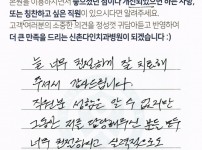 본원을 이용하시면서 좋았던 점이나 개선되었으면 하는 사항,
또는 칭찬하고 싶은 직원이 있으시다면 알려주세요.
고객여러분의 소중한 의견을 정성껏 귀담아듣고 반영하여
더 큰 만족을 드리는 신촌다인치과병원이 되겠습니다 :)
늘 너무 친절하게 잘 치료해
주셔서 감사드립니다.
직원분 성함은 알 수 없지만
그동안 저를 담당해주신 분들 모두
너무 친절하시고 실력적으로도